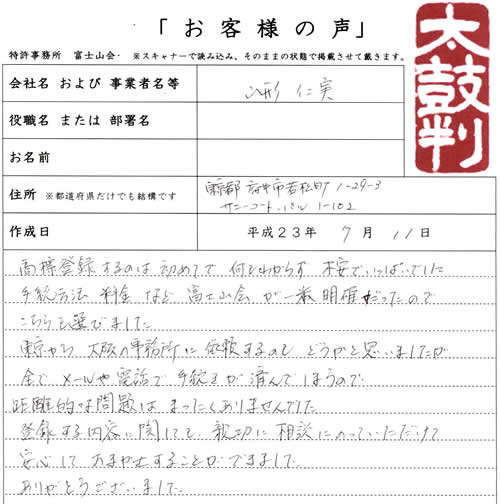 「お客様の声」
特許事務所 富士山会・ ※スキャナーで読み込み、そのままの状態で掲載させて戴きます。
太鼓判
会社名 および 事業者名等
仁実
役職名 または 部署名
お名前
住所 ※都道府県だけでも結構です
東京都 府中市若松町 1-29-3
サニーコート・パル 1-102
作成日
平成23年 7月 11日
商標登録するのは初めてで 何もわからず 不安でいっぱいでした
手続方法 料金など 富士山会が一番 明確だったので
こちらを選びました
東京から 大阪の事務所に依頼するのも どうかと思いましたが
全て メールや電話で 手続きが済んでしまうので
距離的な問題は まったくありませんでした
登録する内容に関しても 親切に相談にのっていただけて
安心して おまかせすることができました
ありがとうございました